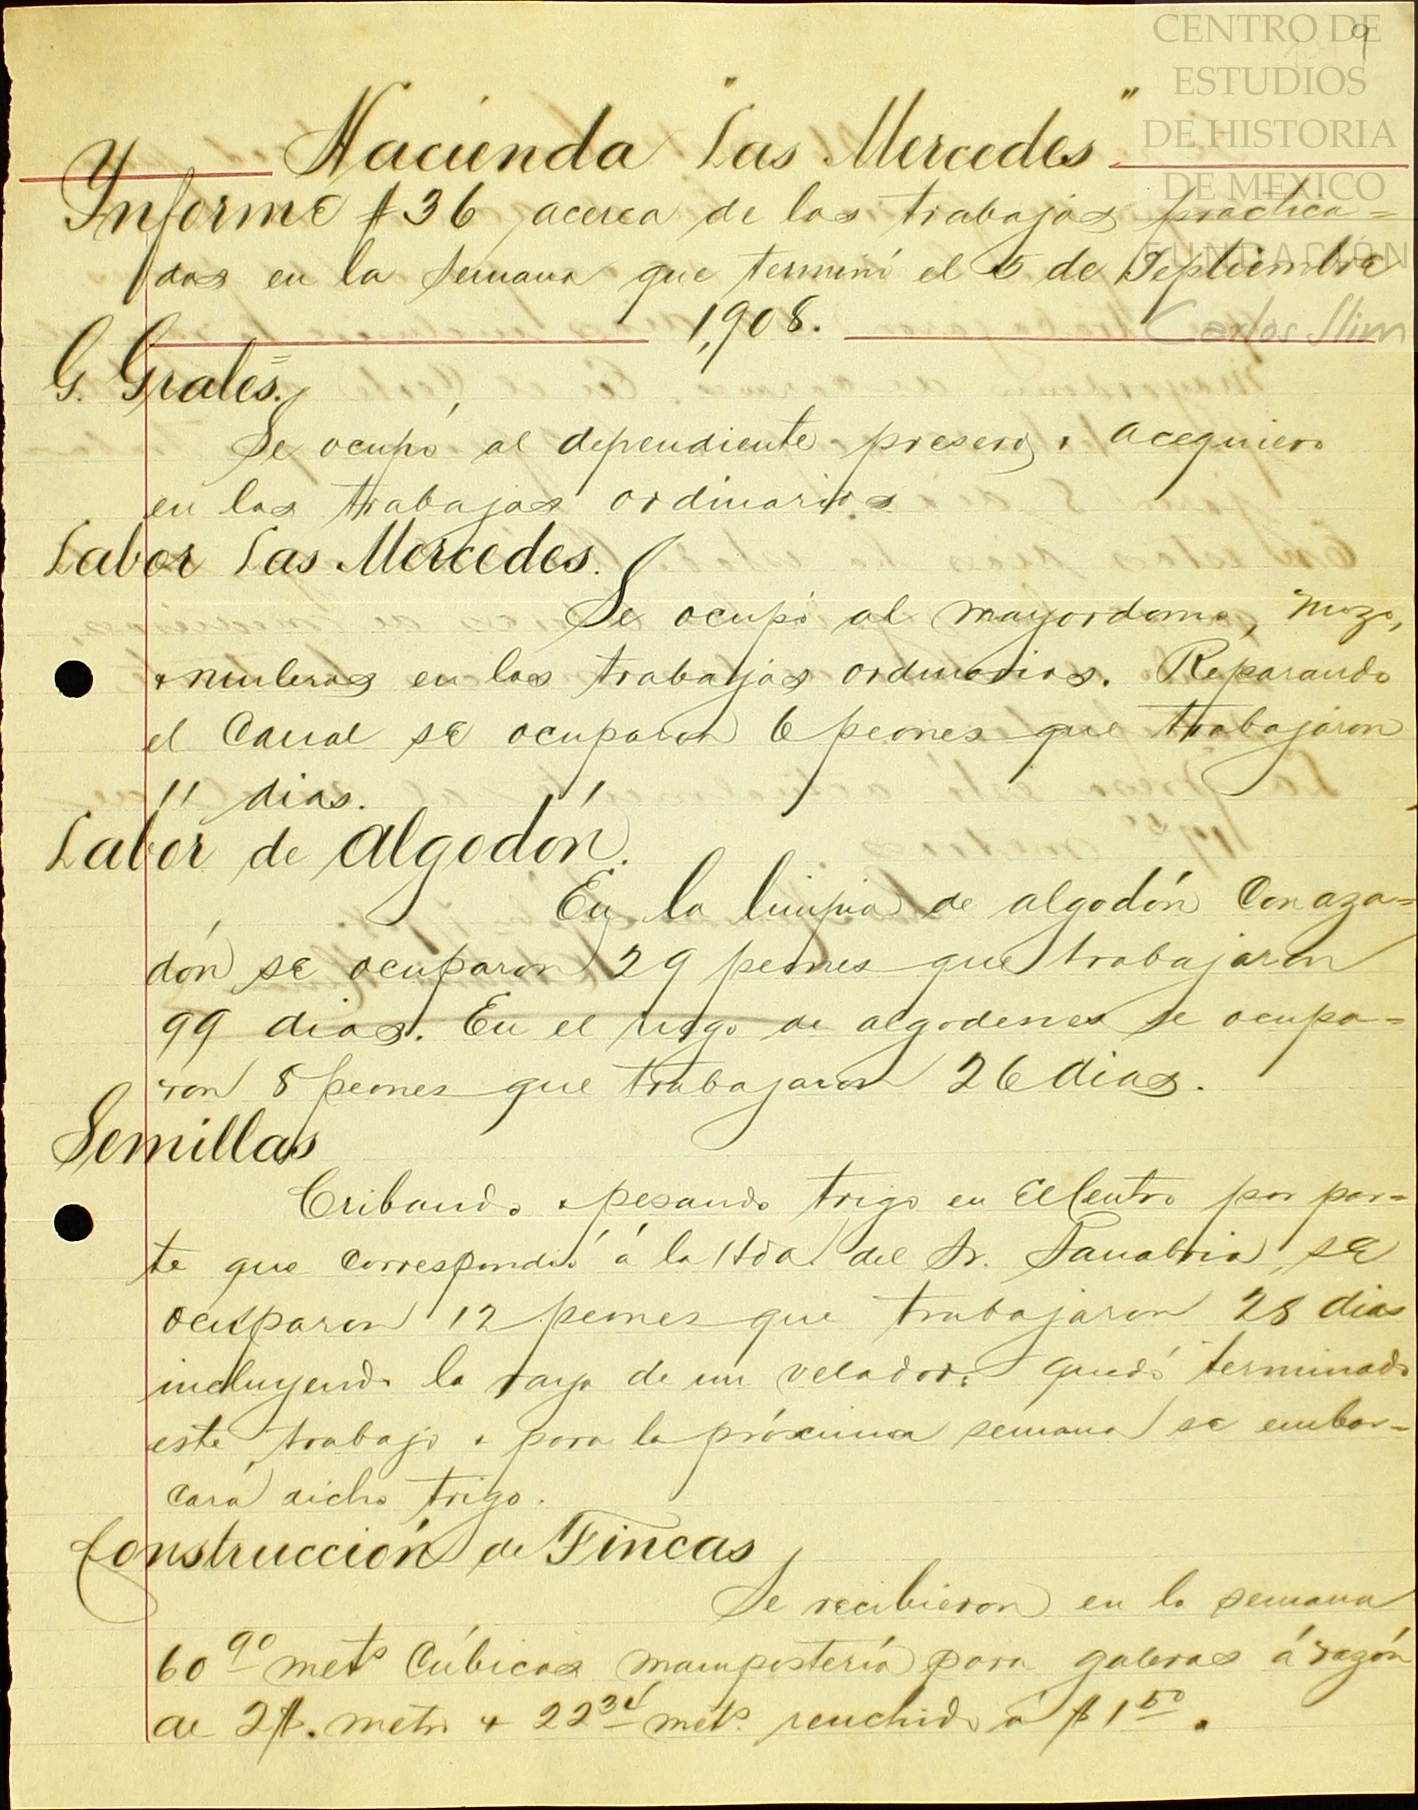 CENTRO DE
ESTUDIOS
DE HISTORIA
DE MEXICO
FUNDACIÓN
Carlos Slim
9
Hacienda "Las Mercedes"
Ynforme # 36 acerca de los trabajos practica=
dos en la semana que terminó el 5 de Septiembre
1,908.
G. Grales.
Se ocupó al dependiente presero, + acequiero
en los trabajos ordinarios
Labor Las Mercedes.
Se ocupó al mayordomo, mozo,
+ muleros en los trabajos ordinarios. Reparando
el Canal se ocuparon 6 peones que trabajaron
11 dias.
Labor de algodón.
En la limpia de algodón con aza=
dón se ocuparon 29 peones que trabajaron
99 dias. En el riego de algodones se ocupa=
ron 8 peones que trabajaron 26 dias.
Semillas
Cribando + pesando trigo en El Centro por par=
te que correspondió á la Hda del Sr. Sanabria, se
ocuparon 12 peones que trabajaron 28 dias
incluyendo la raya de un velador. Quedó terminado
este trabajo + para la próxima semana se embar=
cará dicho trigo.
Construcción de Fincas
Se recibieron en la semana
60 90 mets Cúbicos mampostería para galeras á razón
de 2$. metro + 22 34 mets. renchido á $ 1 50.